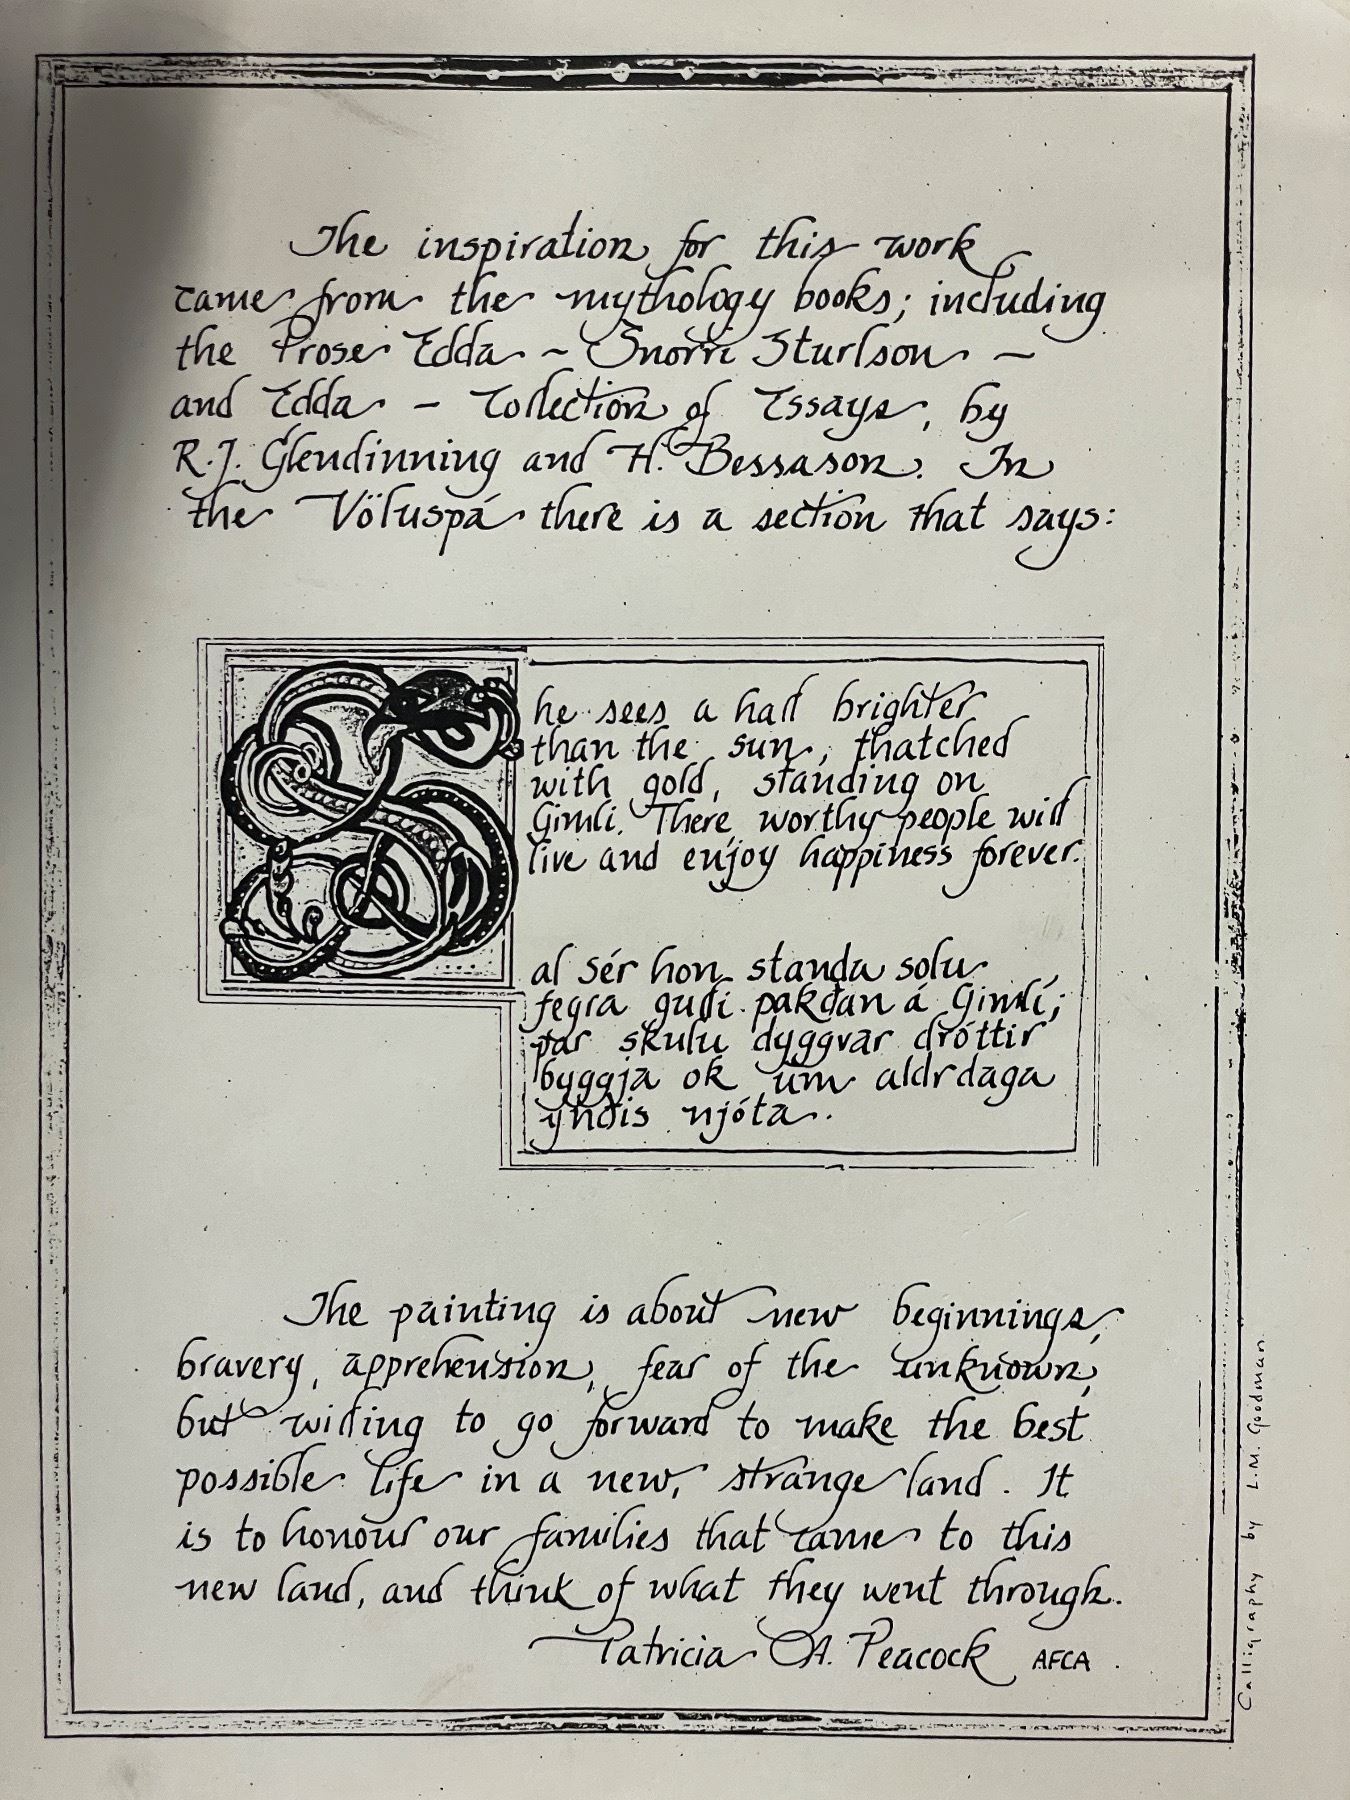 The inspiration for this work
came from the mythology books; including
the Prose Edda ~ Snorri Sturlson ~
and Edda - Collection of Essays, by
R.J. Glendinning and H. Bessason. In
the Völuspá there is a section that says:
She sees a hall brighter
than the sun, thatched
with gold, standing on
Gimli. There worthy people will
live and enjoy happiness forever.
al sér hon standa solu
fegra gulli þakđan á Gimlí;
þar skulu dyggvar dróttir
byggja ok um aldrdaga
ynđis njóta.
The painting is about new beginnings,
bravery, apprehension, fear of the unknown,
but willing to go forward to make the best
possible life in a new, strange land. It
is to honour our families that came to this
new land, and think of what they went through.
Patricia A. Peacock AFCA
Calligraphy by L.M. Goodman